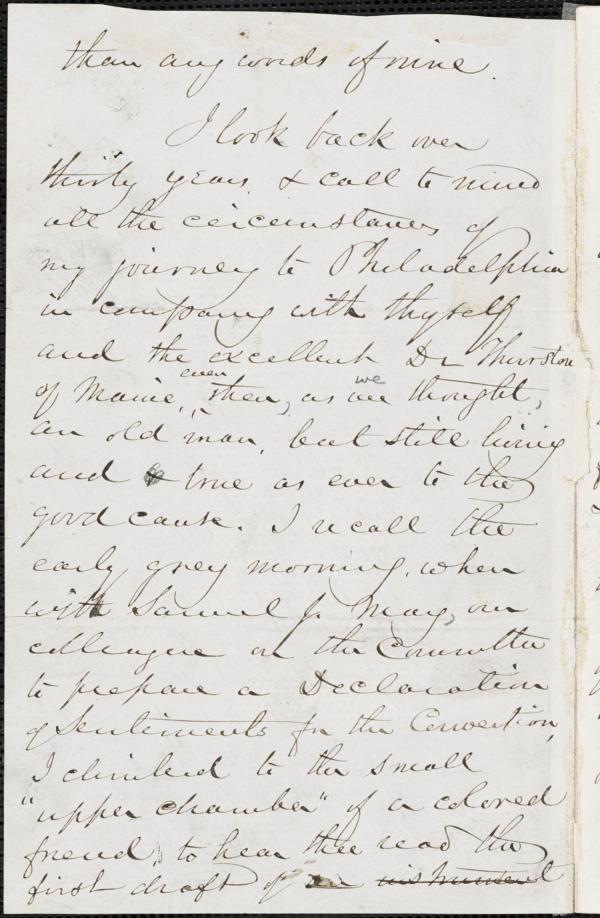 than any words of mine.
I look back over
thirty years, & call to mind
all the circumstances of
my journey to Philadelphia
in company with thyself
and the excellent Dr Thurston
of Maine, even then, as we we thought,
an old man, but still living
and true as ever to the
good cause. I recall the
early grey morning, when
with Samuel J. May, our
colleague on the Committee
to prepare a Declaration
of Sentiments for the Convention,
I climbed to the small
"upper chamber" of a colored
friend, to hear thee read the
first draft of an instrument